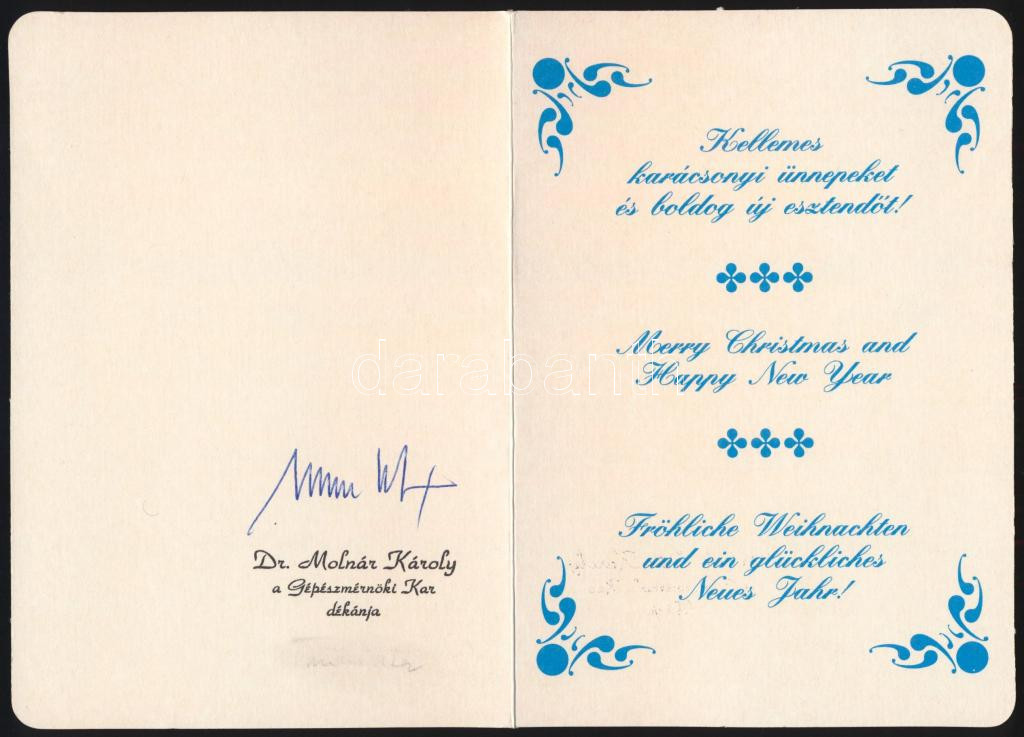 Dr. Molnár Károly
a Gépészmérnöki Kar
dékánja
Kellemes
karácsonyi ünnepeket
és boldog új esztendőt!
Merry Christmas and
Happy New Year
Fröhliche Weihnachten
und ein glückliches
Neues Jahr!
darabanth